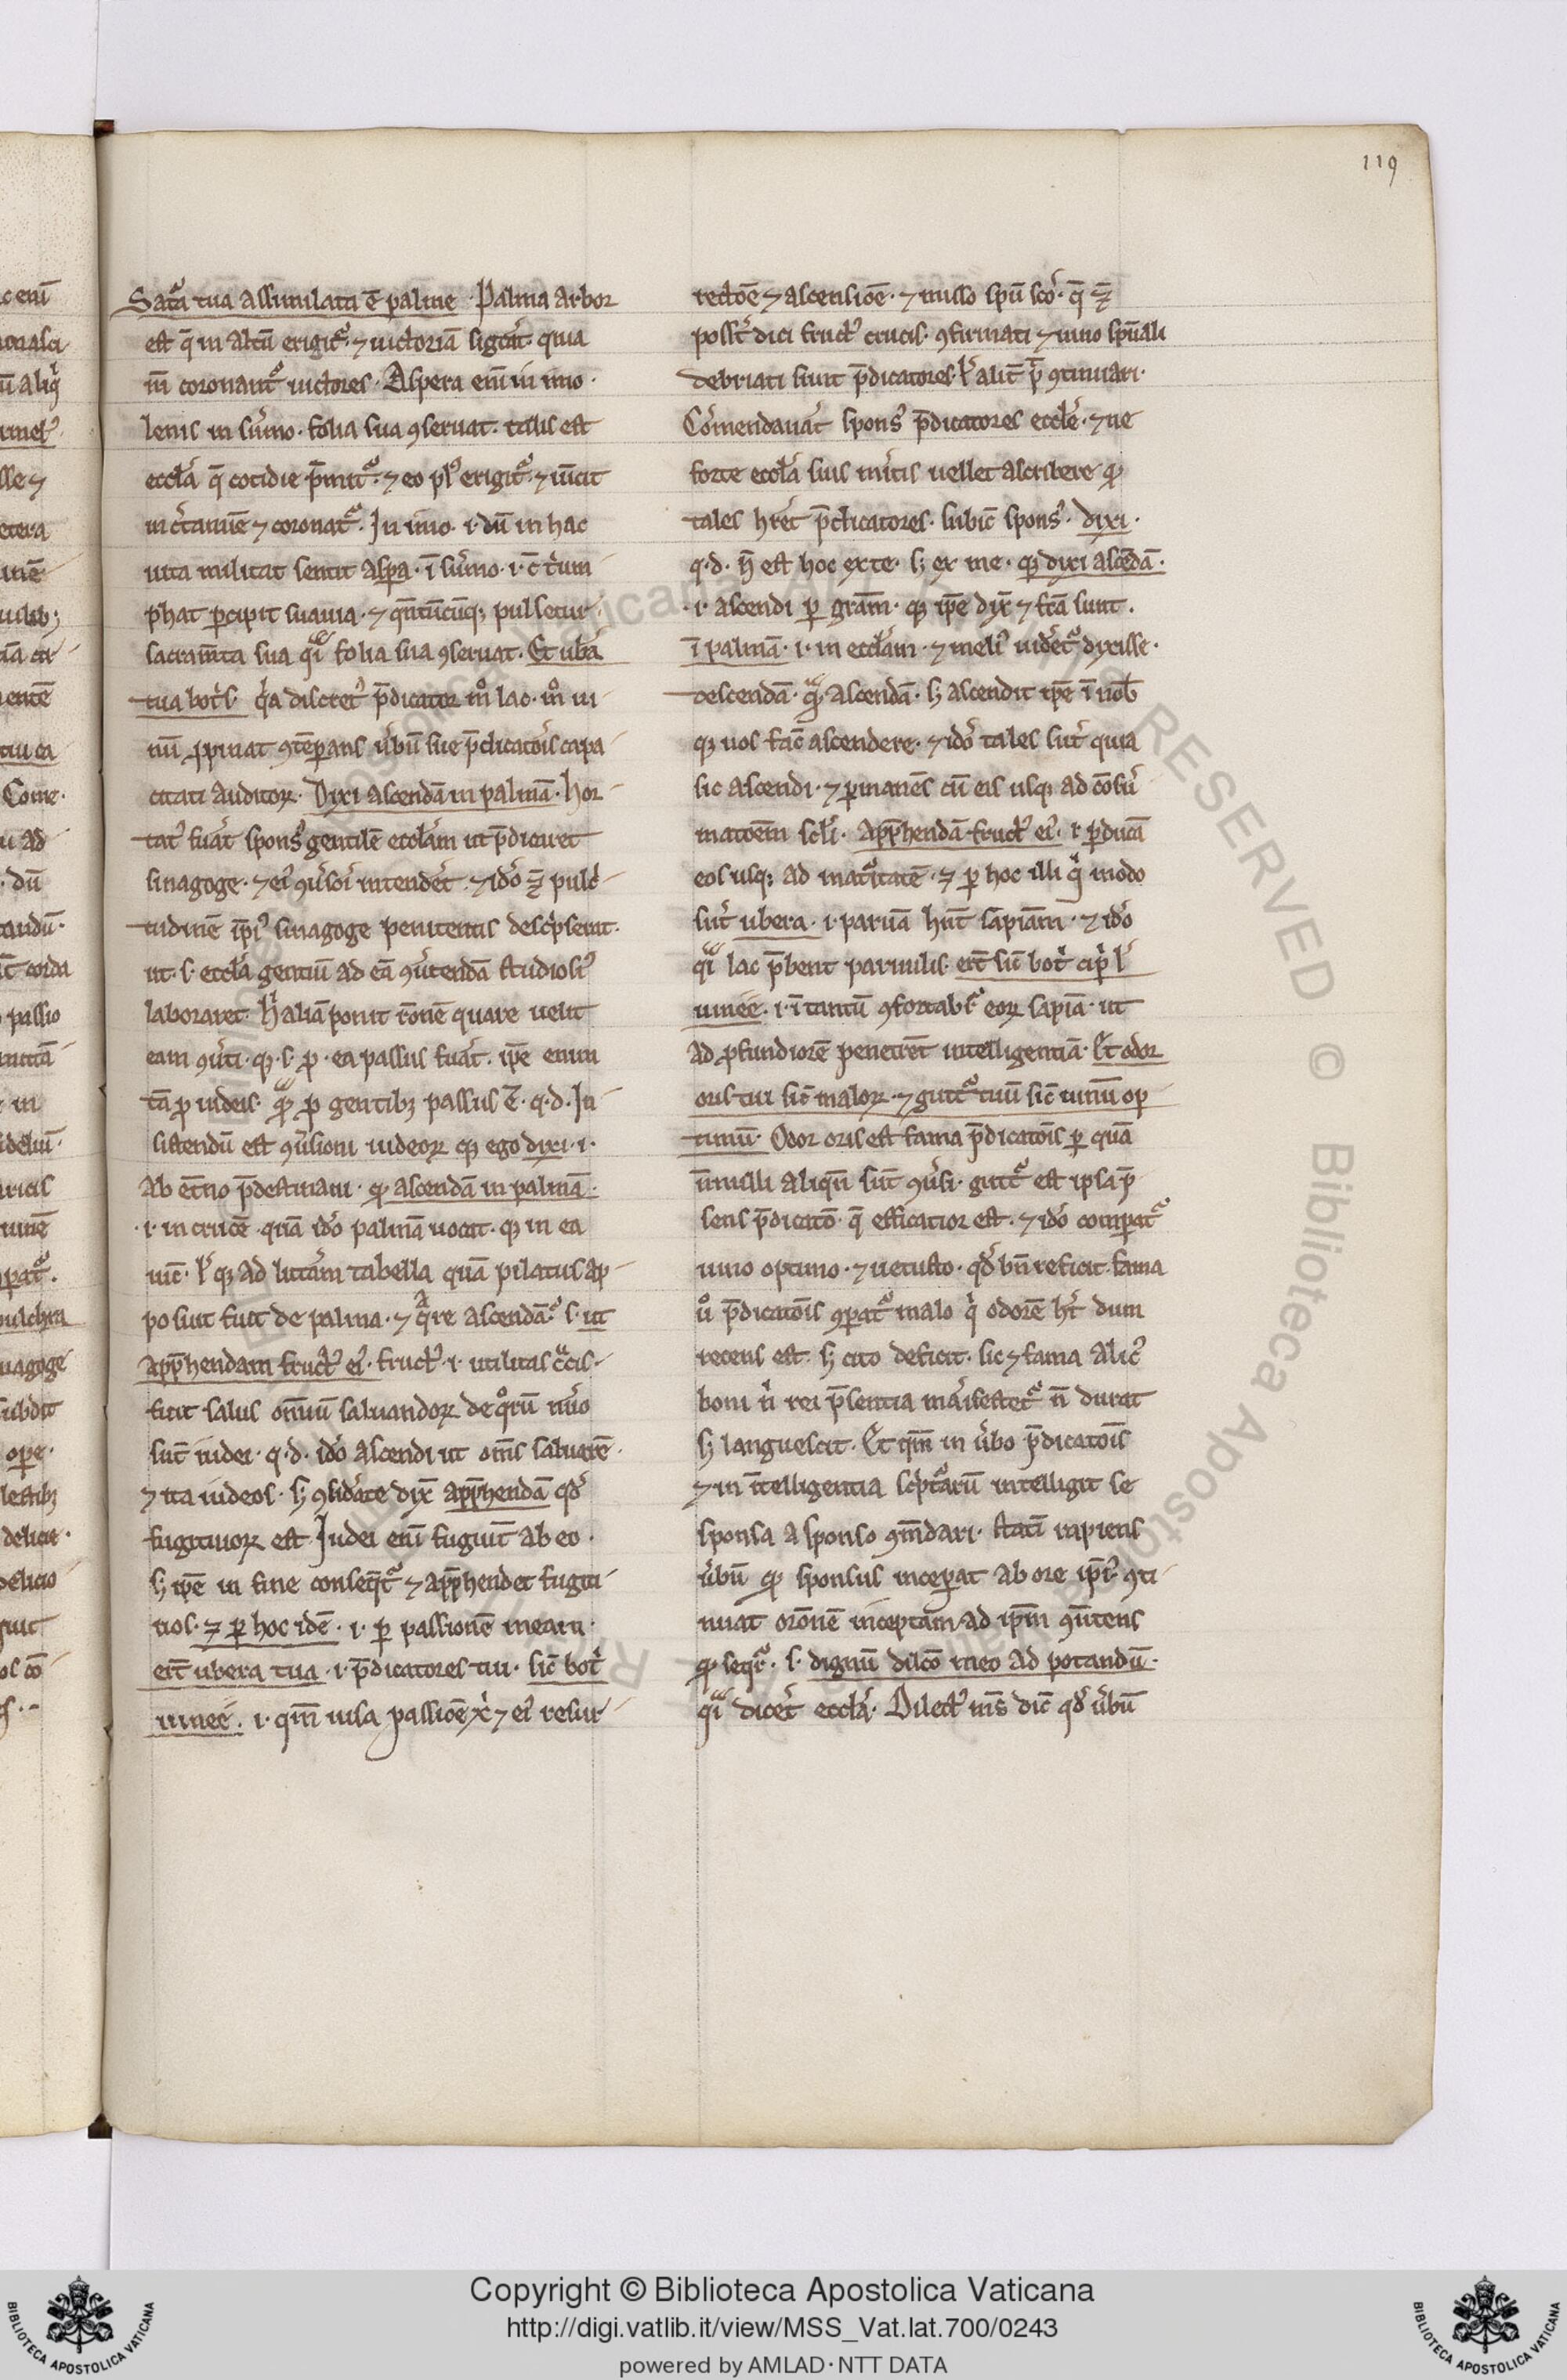 119
Satᷓa tua assimilata ē palme. Palma arbor
est q̄ in altū erigit᷑. ⁊ uictoriā sig̅t. quia
coronant᷑ uictores. Aspera eni̅ in imo.
lenis in su̅mo. folia sua ꝯseruat. talis est
eccl̅a q̄ cotidie p̅mit᷑. ⁊ eo pl᷒ erigit᷑. ⁊ uīcit
in c̾tamīe ⁊ coronat᷑. In imo .i. du̅ in hac
uita militat sentit aspa. ī su̅mo .i. c̄ t̾um
phat percipit suauia. ⁊ q̄ntūcūq; pulsetur
sacram̅ta sua q̾i folia sua ꝯseruat. Et ub̾a
tua bot̾s. q̾a discret᷒ p̄dicator m̊ lac. m̊ ui
nū ꝓpinat ꝯtēperans u̾bū sue p̄dicatōis capa
citati auditoꝝ. Dixi ascendā in palmā. hor
tat᷒ fuāt spons᷒ gentilē eccl̅am ut p̄dicaret
sinagoge. ⁊ ei᷒ ꝯu̾sioi intendēt. ⁊ idō pulc̾
tudinē ip̄i᷒ sinagoge penitentis desc̾pserat.
ut .s. eccl̅a gentiū ad eā ꝯu̾tendā studiosi᷒
laboraret. H̾ aliā ponit rōnē quare uelit
eam ꝯu̾ti. q̄ .s. ꝓ ea passus fuāt. ip̄e enim
tā ꝓ iudeis. q̾ ꝓ gentibꝫ passus ē. q.d. In
sistendū est ꝯu̾sioni iudeoꝝ qꝫ ego dixi .i.
ab et̄no p̄destinaui. ꝙ ascendā in palmā.
.i. in crucē. quā idō palmā uocat. qꝫ in ea
uic̄. ł qꝫ ad litt̾am tabella quā pilatus ap
posuit fuit de palma. ⁊ q̾re ascendā? .s. ut
app̄hendam fruct᷒ ei᷒. fruct᷒ .i. utilitas c̾cis.
fuit salus om̅iū saluandoꝝ de q̊rū nu̾o
sūt iudei. q.d. idō ascendi ut om̅s saluarē.
⁊ ita iudeos. s; ꝯsid̾ate dix̄ app̄hendā qd̾
fugitiuoꝝ est. Iudei eni̅ fugiūt ab eo.
s; ip̄e in fine conseq̄t᷑ ⁊ app̄hendet fugiti
uos. ⁊ ꝑ hoc idē .i. ꝑ passionē meam.
er̄t ubera tua .i. p̄dicatores tui. sic̄ bot̾
uinee. .i. qm̅ uisa passiōe x̄i ⁊ ei᷒ resur
rectōe ⁊ ascensiōe. ⁊ misso sp̅u sc̅o. q̄
poss̄t dici fruct᷒ crucis. ꝯfirmati ⁊ uino sp̅uali
debriati sunt p̄dicatores. ł alit̄ p̄ ꝯtinuari.
Co̅mendauāt spons᷒ p̄dicatores eccl̅e. ⁊ ne
forte eccl̅a suis m̾itis uellet ascribere ꝙ
tales hr̅et p̄dicatores. subic̄ spons᷒. dixi.
q.d. n̄ est hoc ex te. s; ex me. qꝫ dixi ascēdā.
.i. ascendi ꝑ gr̅am. qꝫ ip̄e dix̄ ⁊ fc̅a sunt.
ī palmā. .i. in eccl̅am. ⁊ meli᷒ uidet᷑ dixisse.
descendā. q̾ ascendā. s; ascendit ip̄e ī nob̄
qꝫ uos fac̄ ascendere. ⁊ idō tales sūt quia
sic ascendi. ⁊ ꝑmanēs cū eis usqꝫ ad cōsu̅
matoēm sc̅li. app̄hendā fruct᷒ ei᷒. .i. ꝑducā
eos usqꝫ ad mat᷑itatē. ⁊ ꝑ hoc illi q̾ modo
sūt ubera. .i. paruā hn̅t sapiam̅. ⁊ idō
q̾i lac p̄bent paruulis. er̄t sic̄ bot̾ cip̾ ł
uinee. .i. ī tantū ꝯfortab̾r eoꝝ sapīa. ut
ad ꝓfundiorē penetrēt intelligentiā. Et odor
oris tui sic̄ maloꝝ. ⁊ gutt᷑ tuū sic̄ uinū op
timū. Odor oris est fama p̄dicatōis ꝑ quā
n̅nulli aliqn̅ sūt ꝯu̾si. gutt᷑ est ipsa p̄
sens p̄dicatō. q̄ efficatior est. ⁊ idō comparat᷑
uino optimo. ⁊ uetusto. qd̾ bn̅ reficit. fama
u̾ p̄dicatōis ꝯparat᷑ malo q̾ odorē h̅t dum
recens est. s; cito deficit. sic ⁊ fama alic᷒
boni n̾ rei p̄sentia manifestet᷑ n̄ durat
s; languescit. Et qm̅ in u̾bo p̄dicatōis
⁊ in ītelligentia sc̾ptarū intelligit se
sponsa a sponso ꝯm̅dari. statī rapiens
u̾bū ꝙ sponsus inceperat ab ore ip̄i᷒ ꝯti
nuat orōnē inceptam ad ip̄m ꝯu̾tens
ꝙ seqr᷑. .s. dignū dilc̅o meo ad potandū.
q̾i dicēt eccl̅a. Dilect᷒ m̅s dic̄ qd̾ u̾bū
Copyright © Biblioteca Apostolica Vaticana
http://digi.vatlib.it/view/MSS_Vat.lat.700/0243
powered by AMLAD·NTT DATA